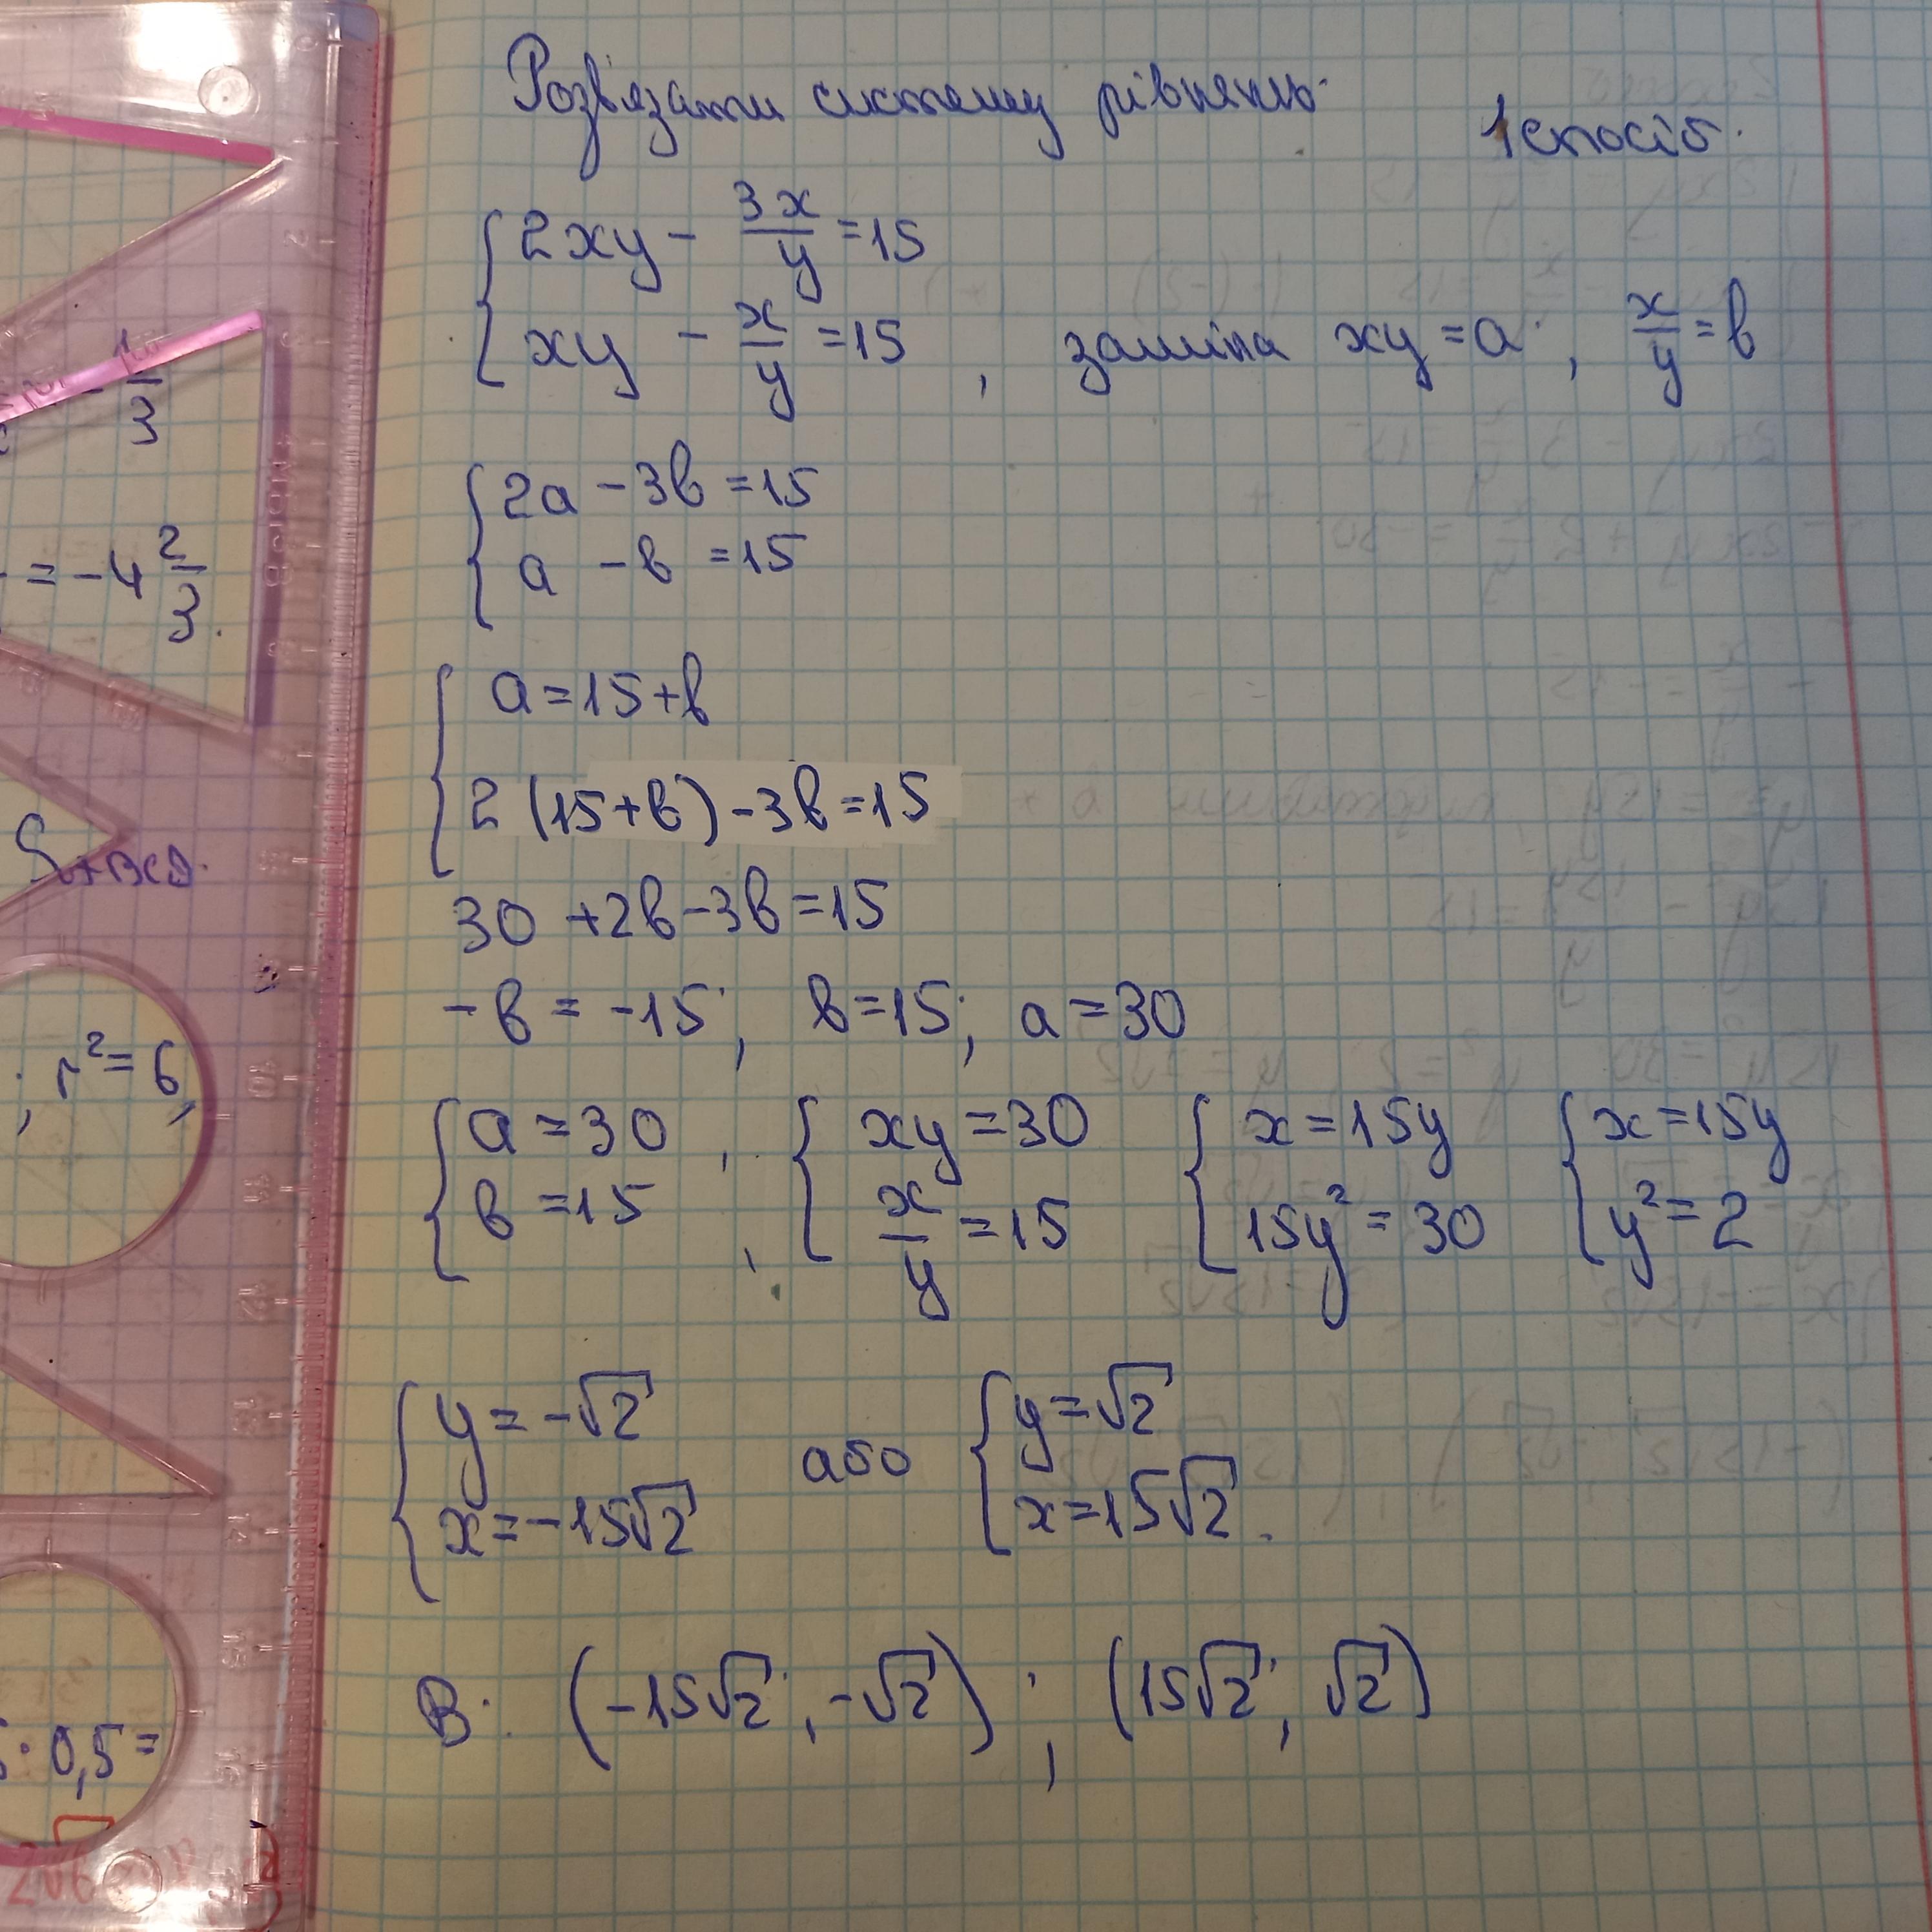 Розв'язати систему рівнянь.
1 спосіб.
{ 2xy - 3x/y = 15
{ xy - x/y = 15 , заміна xy = a ; x/y = b
{ 2a - 3b = 15
{ a - b = 15
{ a = 15 + b
{ 2 (15 + b) - 3b = 15
30 + 2b - 3b = 15
- b = -15 ; b = 15 ; a = 30
{ a = 30 , { xy = 30 { x = 15y { x = 15y
{ b = 15 , { x/y = 15 { 15y² = 30 { y² = 2
{ y = -√2 або { y = √2
{ x = -15√2 { x = 15√2.
В: (-15√2 ; -√2) ; (15√2 ; √2)
1/3
= -4 2/3.
; r² = 6,
: 0,5 =